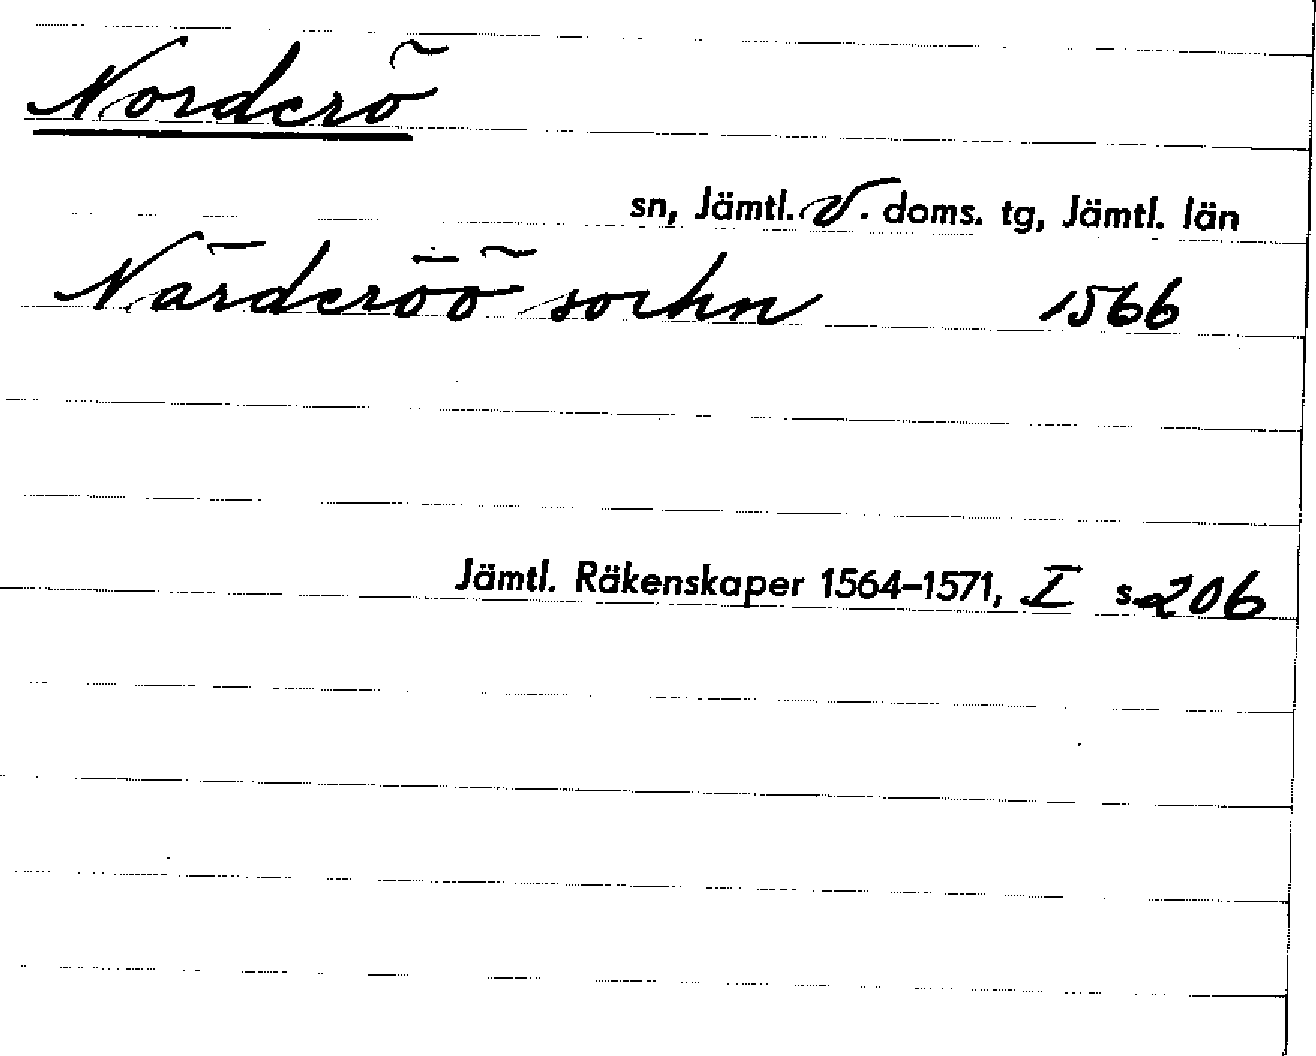 Norderö
sn, Jämtl. V. doms. tg, Jämtl. län
Närderöö sochn 1566
Jämtl. Räkenskaper 1564–1571, I s 206